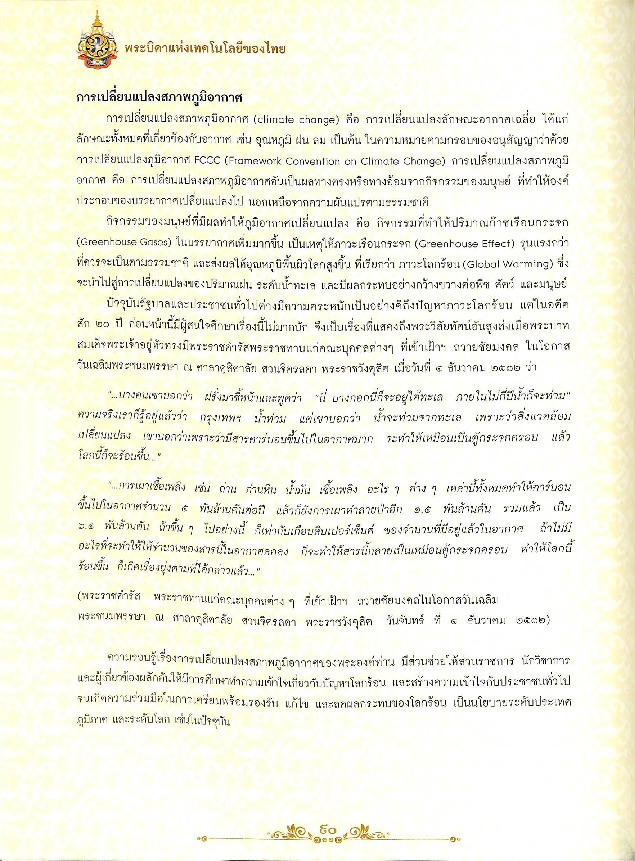 พระบิดาแห่งเทคโนโลยีของไทย
การเปลี่ยนแปลงสภาพภูมิอากาศ
การเปลี่ยนแปลงสภาพภูมิอากาศ (climate change) คือ การเปลี่ยนแปลงลักษณะอากาศเฉลี่ย ได้แก่
ลักษณะทั้งหมดที่เกี่ยวข้องกับอากาศ เช่น อุณหภูมิ ฝน ลม เป็นต้น ในความหมายตามกรอบของอนุสัญญาว่าด้วย
การเปลี่ยนแปลงภูมิอากาศ FCCC (Framework Convention on Climate Change) การเปลี่ยนแปลงสภาพภูมิ
อากาศ คือ การเปลี่ยนแปลงสภาพภูมิอากาศอันเป็นผลทางตรงหรือทางอ้อมจากกิจกรรมของมนุษย์ ที่ทำให้องค์
ประกอบของบรรยากาศเปลี่ยนแปลงไป นอกเหนือจากความผันแปรตามธรรมชาติ
กิจกรรมของมนุษย์ที่มีผลทำให้ภูมิอากาศเปลี่ยนแปลง คือ กิจกรรมที่ทำให้ปริมาณก๊าซเรือนกระจก
(Greenhouse Gases) ในบรรยากาศเพิ่มมากขึ้น เป็นเหตุให้ภาวะเรือนกระจก (Greenhouse Effect) รุนแรงกว่า
ที่ควรจะเป็นตามธรรมชาติ และส่งผลให้อุณหภูมิพื้นผิวโลกสูงขึ้น ที่เรียกว่า ภาวะโลกร้อน (Global Warming) ซึ่ง
จะนำไปสู่การเปลี่ยนแปลงของปริมาณฝน ระดับน้ำทะเล และมีผลกระทบอย่างกว้างขวางต่อพืช สัตว์ และมนุษย์
ปัจจุบันรัฐบาลและประชาชนทั่วไปต่างมีความตระหนักเป็นอย่างดีถึงปัญหาภาวะโลกร้อน แต่ในอดีต
สัก ๒๐ ปี ก่อนหน้านี้มีผู้สนใจศึกษาเรื่องนี้ไม่มากนัก จึงเป็นเรื่องที่แสดงถึงพระวิสัยทัศน์อันสูงส่งเมื่อพระบาท
สมเด็จพระเจ้าอยู่หัวทรงมีพระราชดำรัสพระราชทานแก่คณะบุคคลต่างๆ ที่เข้าเฝ้าฯ ถวายชัยมงคล ในโอกาส
วันเฉลิมพระชนมพรรษา ณ ศาลาดุสิดาลัย สวนจิตรลดา พระราชวังดุสิต เมื่อวันที่ ๔ ธันวาคม ๒๕๓๒ ว่า
"...บางคนเขาบอกว่า ฝรั่งมาชี้หน้าและพูดว่า "นี่ บางกอกนี่ก็จะอยู่ใต้ทะเล ภายในไม่กี่ปีน้ำก็จะท่วม"
ความจริงเราก็รู้อยู่แล้วว่า กรุงเทพฯ น้ำท่วม แต่เขาบอกว่า น้ำจะท่วมจากทะเล เพราะว่าสิ่งแวดล้อม
เปลี่ยนแปลง เขาบอกว่าเพราะว่ามีสารคาร์บอนขึ้นไปในอากาศมาก จะทำให้เหมือนเป็นตู้กระจกครอบ แล้ว
โลกนี้ก็จะร้อนขึ้น..."
"...การเผาเชื้อเพลิง เช่น ถ่าน ถ่านหิน น้ำมัน เชื้อเพลิง อะไร ๆ ต่าง ๆ เหล่านี้ทั้งหมดทำให้คาร์บอน
ขึ้นไปในอากาศจำนวน ๕ พันล้านตันต่อปี แล้วก็ยังการเผาทำลายป่าอีก ๑.๕ พันล้านตัน รวมแล้ว เป็น
๖.๕ พันล้านตัน ถ้าขึ้น ๆ ไปอย่างนี้ ก็เท่ากับเกือบสิบเปอร์เซ็นต์ ของจำนวนที่มีอยู่แล้วในอากาศ ถ้าไม่มี
อะไรที่จะทำให้ให้จำนวนของสารนี้ในอากาศลดลง ก็จะทำให้สารนี้กลายเป็นเหมือนตู้กระจกครอบ ทำให้โลกนี้
ร้อนขึ้น ก็เกิดเรื่องยุ่งตามที่ได้กล่าวแล้ว..."
(พระราชดำรัส พระราชทานแก่คณะบุคคลต่าง ๆ ที่เข้าเฝ้าฯ ถวายชัยมงคลในโอกาสวันเฉลิม
พระชนมพรรษา ณ ศาลาดุสิดาลัย สวนจิตรลดา พระราชวังดุสิต วันจันทร์ ที่ ๔ ธันวาคม ๒๕๓๒)
ความรอบรู้เรื่องการเปลี่ยนแปลงสภาพภูมิอากาศของพระองค์ท่าน มีส่วนช่วยให้ส่วนราชการ นักวิชาการ
และผู้เกี่ยวข้องผลักดันให้มีการศึกษาทำความเข้าใจเกี่ยวกับปัญหาโลกร้อน และสร้างความเข้าใจกับประชาชนทั่วไป
จนเกิดความร่วมมือในการเตรียมพร้อมรองรับ แก้ไข และลดผลกระทบของโลกร้อน เป็นนโยบายระดับประเทศ
ภูมิภาค และระดับโลก เช่นในปัจจุบัน
๕๐